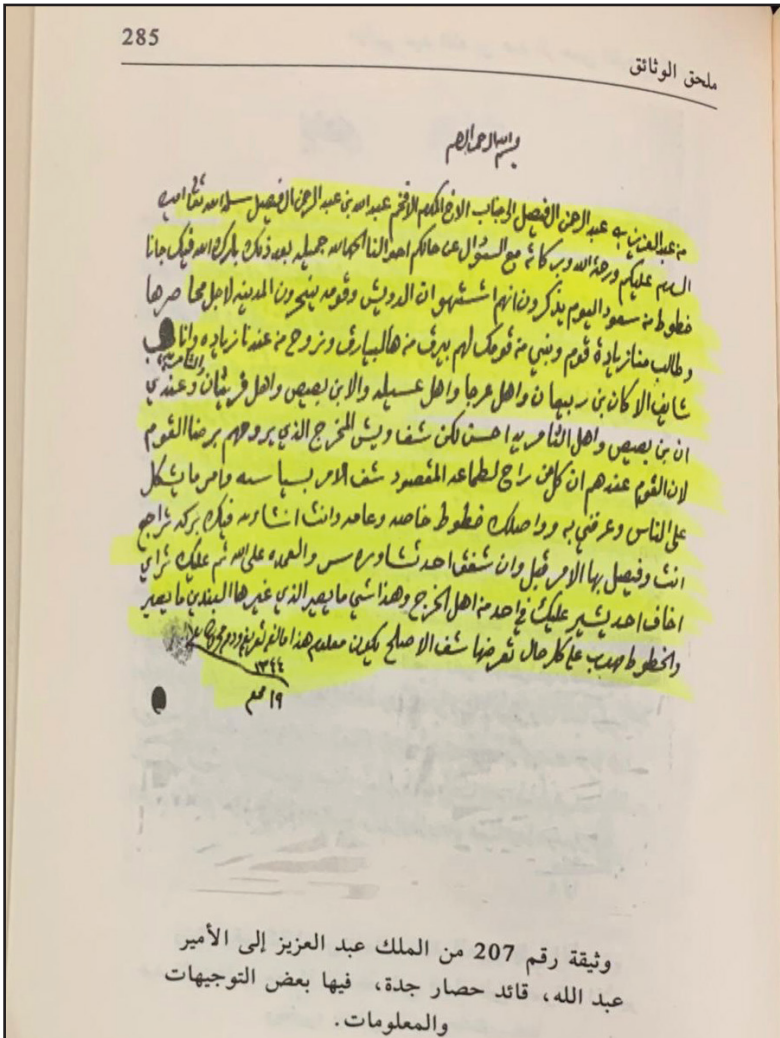 285
ملحق الوثائق
بسم الله الرحمن الرحيم
من عبد العزيز بن عبد الرحمن الفيصل الى جناب الاخ المكرم الافخم عبد الله بن عبد الرحمن الفيصل سلمه الله تعالى امين
السلام عليكم ورحمة الله وبركاته مع السؤال عن حالكم احوالنا الحمد لله جميله بعد ذلك بارك الله فيك جانا
خطوط من سعود اليوم يذكرون انهم اشتهوا ان الدويش وقومه ينحرون المدينه لاجل محاصرها
وطالب منا زيادة قوم ونبي من قومك لهم بيرق من هالبيارق ونروح من عندنا زياده وانا
شايف الا كان بن ربيعان واهل عرجا واهل عسيله والا بن بصيص واهل قريثان وعندي
ان بن بصيص واهل احسن لكن شف ويش المخرج الذي يروحهم برضا القوم
لان القوم عندهم ان كل من راح لطماعه المقصود شف الامر بسياسه وامر ما يشكل
على الناس وعرفني به وواصلك خطوط خاصه وعامه وانت انشا الله فيك بركه تراجع
انت وفيصل بها الامر قبل وان شفت احد تشاوره والعمده على الله ثم عليك تراي
اخاف احد يشير عليك في احد من اهل الخرج وهذا شي ما يصير الذي غيرها البندين ما يصير
والخطوط على كل حال تعرضها شف الاصلح يكون معلوم هذا ما لزم تعريفه ودم محروس
١٣٤٤
١٩ محرم
وثيقة رقم 207 من الملك عبد العزيز إلى الأمير
عبد الله، قائد حصار جدة، فيها بعض التوجيهات
والمعلومات.